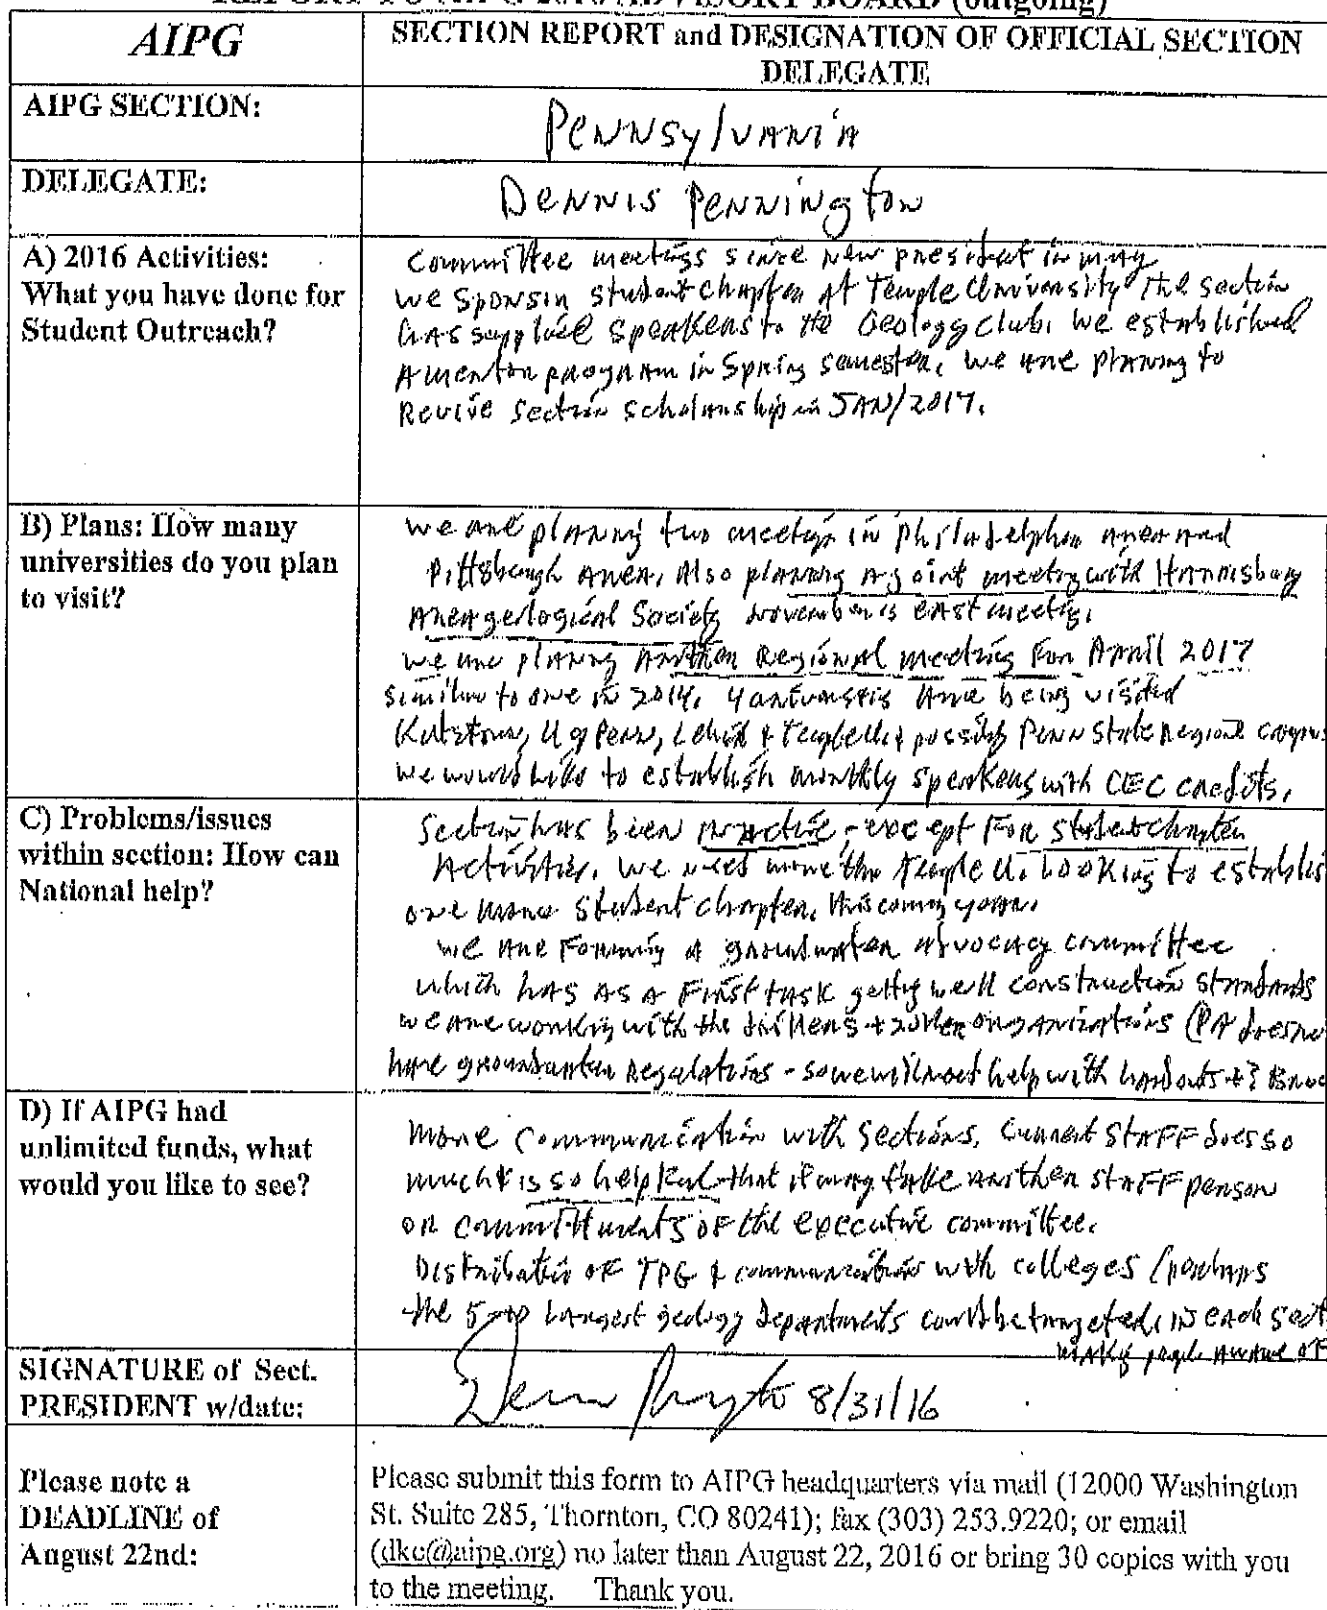 REPORT TO AIPG 2016 ADVISORY BOARD (outgoing)
AIPG
SECTION REPORT and DESIGNATION OF OFFICIAL SECTION
DELEGATE
AIPG SECTION:
Pennsylvania
DELEGATE:
Dennis Pennington
A) 2016 Activities:
What you have done for
Student Outreach?
Committee meetings since new president in may
we sponsin student chapter at Temple University The section
has supplied speakers to the Geology club. we established
A mentor program in Spring semester. we are planing to
Revive section scholarship in JAN/2017.
B) Plans: How many
universities do you plan
to visit?
we are planing two meetigs in Philadelphia area and
Pittsburgh Area. Also planing a joint meetig with Harrisburg
Area geological Society November is east meetig.
we are planing Another Regional meeting For April 2017
similar to one in 2014. 4 are being visited
Kutztown, U of Penn, Lehigh & Temple U & possibly Penn State regional
we would like to establish monthly speakers with CEC credits.
C) Problems/issues
within section: How can
National help?
Section has been inactive - except For student chapter
Activities. we need more than Temple U. Looking to establis
one more student chapter. this coming year.
we are Forming a groundwater advocacy committee
which has as a First task gettig well construction standards
we are workig with the drillers + 2 other organizations (PA does no
have groundwater regulations - so we will need help with handouts +
D) If AIPG had
unlimited funds, what
would you like to see?
More communication with sections. Current StaFF does so
much & is so helpful that it may take another staFF person
or committments oF the executive committee.
Distribution oF TPG & communication with colleges (perhaps
the 5 Largest geology Departments could be targeted. in each sect
people aware of
SIGNATURE of Sect.
PRESIDENT w/date:
8/31/16
Please note a
DEADLINE of
August 22nd:
Please submit this form to AIPG headquarters via mail (12000 Washington
St. Suite 285, Thornton, CO 80241); fax (303) 253.9220; or email
(dkc@aipg.org) no later than August 22, 2016 or bring 30 copies with you
to the meeting. Thank you.